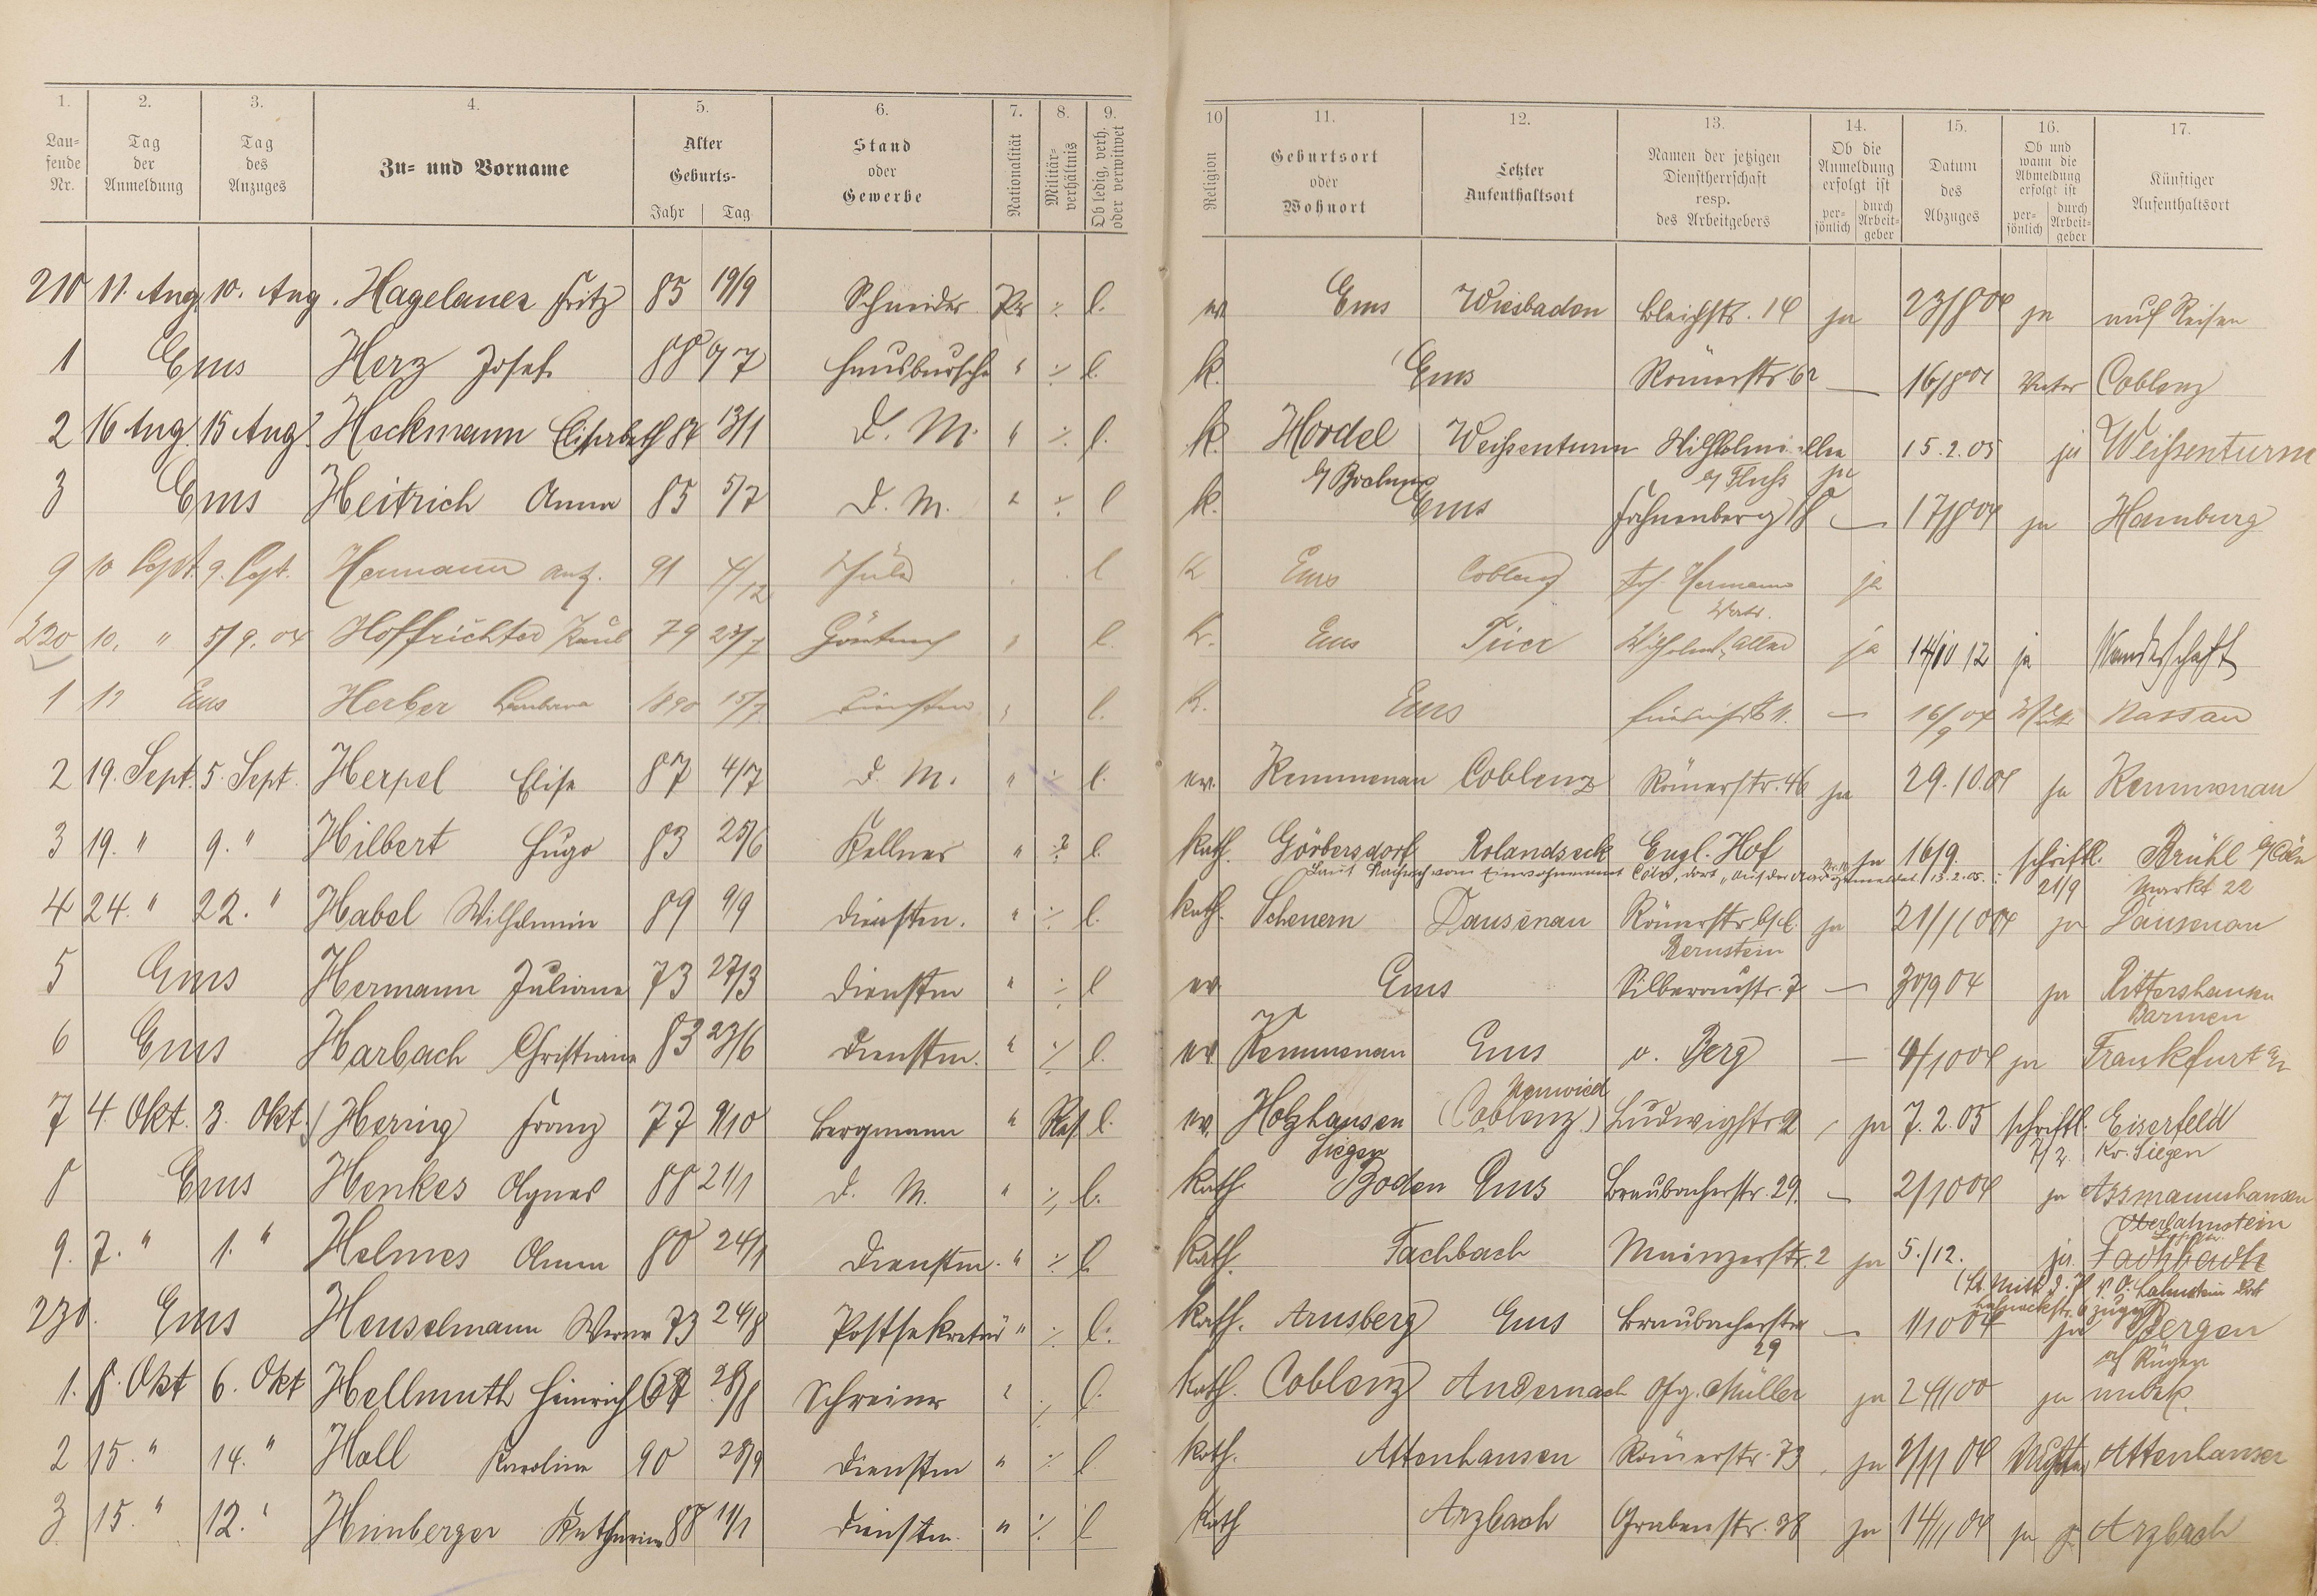 1. 2. 3. 4. 5. 6. 7. 8. 9. 10 11. 12. 13. 14. 15. 16. 17.
Lau-
fende
Nr.
Tag
der
Anmeldung
Tag
des
Anzuges
Zu- und Vorname
Alter
Geburts-
Jahr Tag
Stand
oder
Gewerbe
Nationalität
Militär-
verhältnis
Ob ledig, verh.
oder verwitwet
Religion
Geburtsort
oder
Wohnort
Letzter
Aufenthaltsort
Namen der jetzigen
Dienstherrschaft
resp.
des Arbeitgebers
Ob die
Anmeldung
erfolgt ist
per-
sönlich
durch
Arbeit-
geber
Datum
des
Abzuges
Ob und
wann die
Abmeldung
erfolgt ist
per-
sönlich
durch
Arbeit-
geber
Künftiger
Aufenthaltsort
210 11. Aug 10. Aug. Hagelauer Fritz 85 19/9 Schneider Pr ./. l. ev Ems Wiesbaden Bleichstr. 14 ja 23/8 04 ja auf Reisen
1 Ems Herz Josef 88 9/7 Hausbursche " ./. l. k. Ems Römerstr 62 — 16/8 04 Vater Coblenz
2 16 Aug 15 Aug Heckmann Elisabeth 84 13/1 D. M. " ./. l. k. Hordel Weißenturm Wilhelmsallee 15.2.05 ja Weißenturm
b/ Bochum a/ Fluss ja
3 Ems Heitrich Anna 85 5/7 D. M. " ./. l k. Ems Fahnenberg 18 — 17/8 04 ja Hamburg
9 10 Sept. 9. Sept. Hermann Ant. 91 4/12 Schüler l K Ems Coblenz Jos. Hermann ja
Vater.
220 10. " 5/9. 04 Hoffrichter Paul 79 23/7 " l. K. Ems Trier Wilhelmsallee ja 14/10 12 ja Wanderschaft
1 12 Ems Herber Barbara 1890 15/7 Dienstm " l. K. Ems Friedrichstr 11. — 16/9 04 Nassau
2 19. Sept. 5. Sept. Herpel Elise 87 4/7 D. M. " ./. l. ev. Kemmenau Coblenz Römerstr. 46 ja 29.10.04 ja Kemmenau
3 19. " 9. " Hilbert Hugo 83 25/6 Kellner " ./. l. kath. Görbersdorf Rolandseck Engl. Hof ja 16/9. schriftl. Brühl b/Cöln
21/9 Markt 22
4 24. " 22. " Habel Wilhelmine 89 9/9 Dienstm. " ./. l. kath. Scheuern Dausenau Römerstr. ja 21/11 04 ja Dausenau
Bernstein
5 Ems Hermann Juliane 73 27/3 Dienstm " ./. l ev Ems Silberaustr. 7 — 30/9 04 ja Rittershausen
Barmen
6 Ems Harbach Christiane 83 23/6 Dienstm. " ./. l. ev Kemmenau Ems v. Berg — 4/10 04 ja Frankfurt
Neuwied
7 4. Okt. 3. Okt. Hering Franz 77 9/10 Bergmann " Res. l. ev. Holzhausen (Coblenz) Ludwigstr 2 ja 7.2.05 schriftl. Eiserfeld
Siegen 7/2 Kr. Siegen
8 Ems Henkes Agnes 88 21/1 D. M. " ./. l. kath. Boden Ems Braubacherstr. 29. — 2/10 04 ja Assmannshausen
Oberlahnstein
9. 7. " 1. " Helmes Anna 80 24/1 Dienstm. " ./. l. kath. Fachbach Mainzerstr. 2 ja 5./12. ja. Fachbach
230. Ems Henselmann Werner 73 24/8 Postsekretär " ./. l. kath. Arnsberg Ems Braubacherstr — 1/10 04 ja Bergen
29 a/ Rügen
1. 8. Okt 6. Okt Hellmuth Heinrich 67 28/8 Schreiner " ./. l. kath. Coblenz Andernach Müller ja ja unbek.
2 15. " 14. " Holl Karoline 90 28/9 Dienstm " ./. l. kath. Attenhausen Römerstr. 73 ja 2/11 04 Mutter Attenhausen
3 15. " 12. " Himberger Katharina 88 11/1 Dienstm. " ./. l kath Arzbach Grabenstr. 38 ja 14/11 04 ja Arzbach